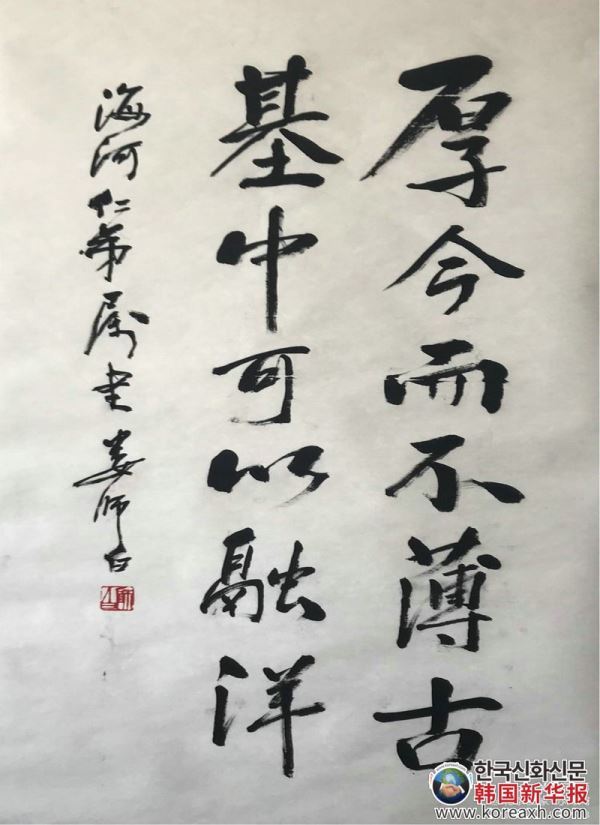 厚今而不薄古
基中可以融洋
海河仁弟属书 娄师白
한국신화신문
韩国新华报
www.koreaxh.com